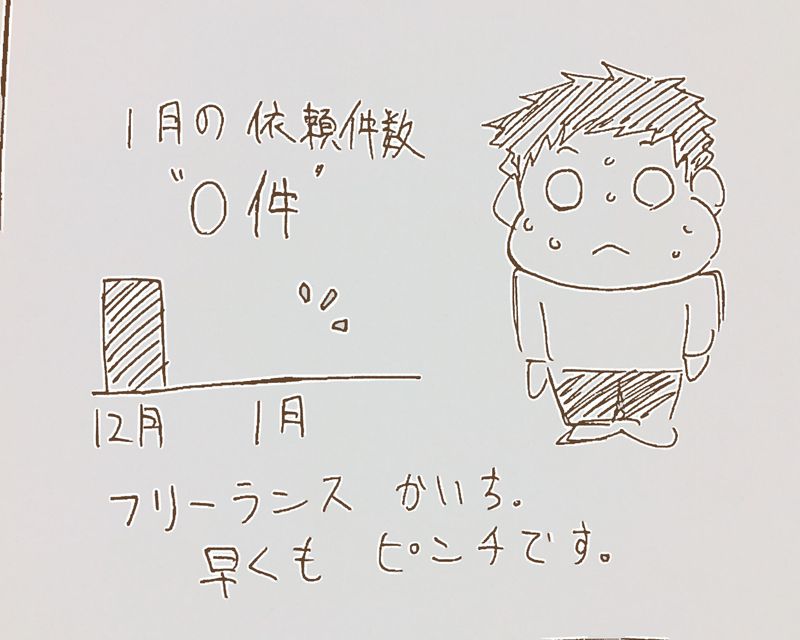 1月の依頼件数
"0件"
12月 1月
フリーランス かいち。
早くも ピンチです。